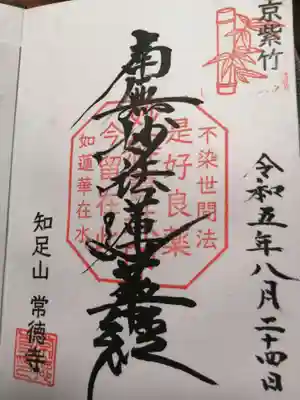 京紫竹
令和五年八月二十四日
南無妙法蓮華経
不染世間法
是好良薬
今留在此
如蓮華在水
知足山 常徳寺